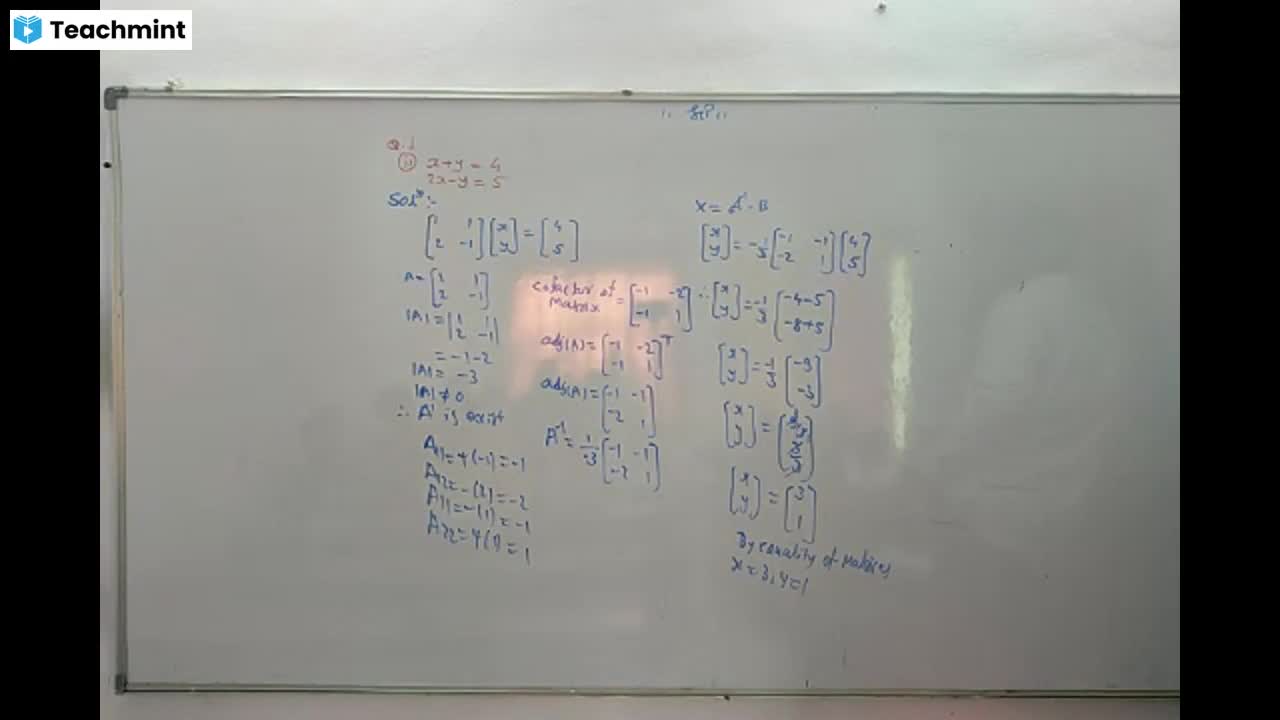 Teachmint
Q.1
ii x+y = 4
2x-y = 5
Solⁿ:-
[1 1; 2 -1] [x; y] = [4; 5]
A = [1 1; 2 -1]
|A| = |1 1; 2 -1|
= -1-2
|A| = -3
|A| ≠ 0
∴ A⁻¹ is exist
A11 = +(-1) = -1
A12 = -(2) = -2
= -(1) = -1
A22 = +(1) = 1
cofactor of
Matrix = [-1 -2; -1 1]
adj(A) = [-1 -2; -1 1]ᵀ
adj(A) = [-1 -1; -2 1]
A⁻¹ = 1/-3 [-1 -1; -2 1]
X = A⁻¹·B
[x; y] = [-1 -1; -2 1] [4; 5]
∴ [x; y] = -1/3 [-4-5; -8+5]
[x; y] = -1/3 [-9; -3]
[x; y] =
[x; y] = [3; 1]
By equality of Matrices
x = 3, y = 1